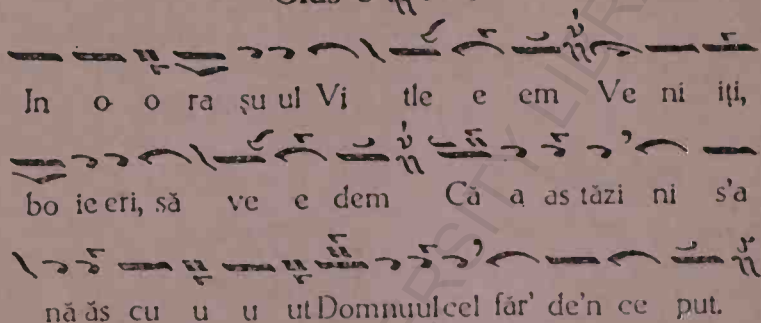 In o o ra șu ul Vi tle e em Ve ni iți,
bo ie eri, să ve e dem Că a as tăzi ni s'a
nă ăs cu u u ut Domnuul cel făr' de'n ce put.